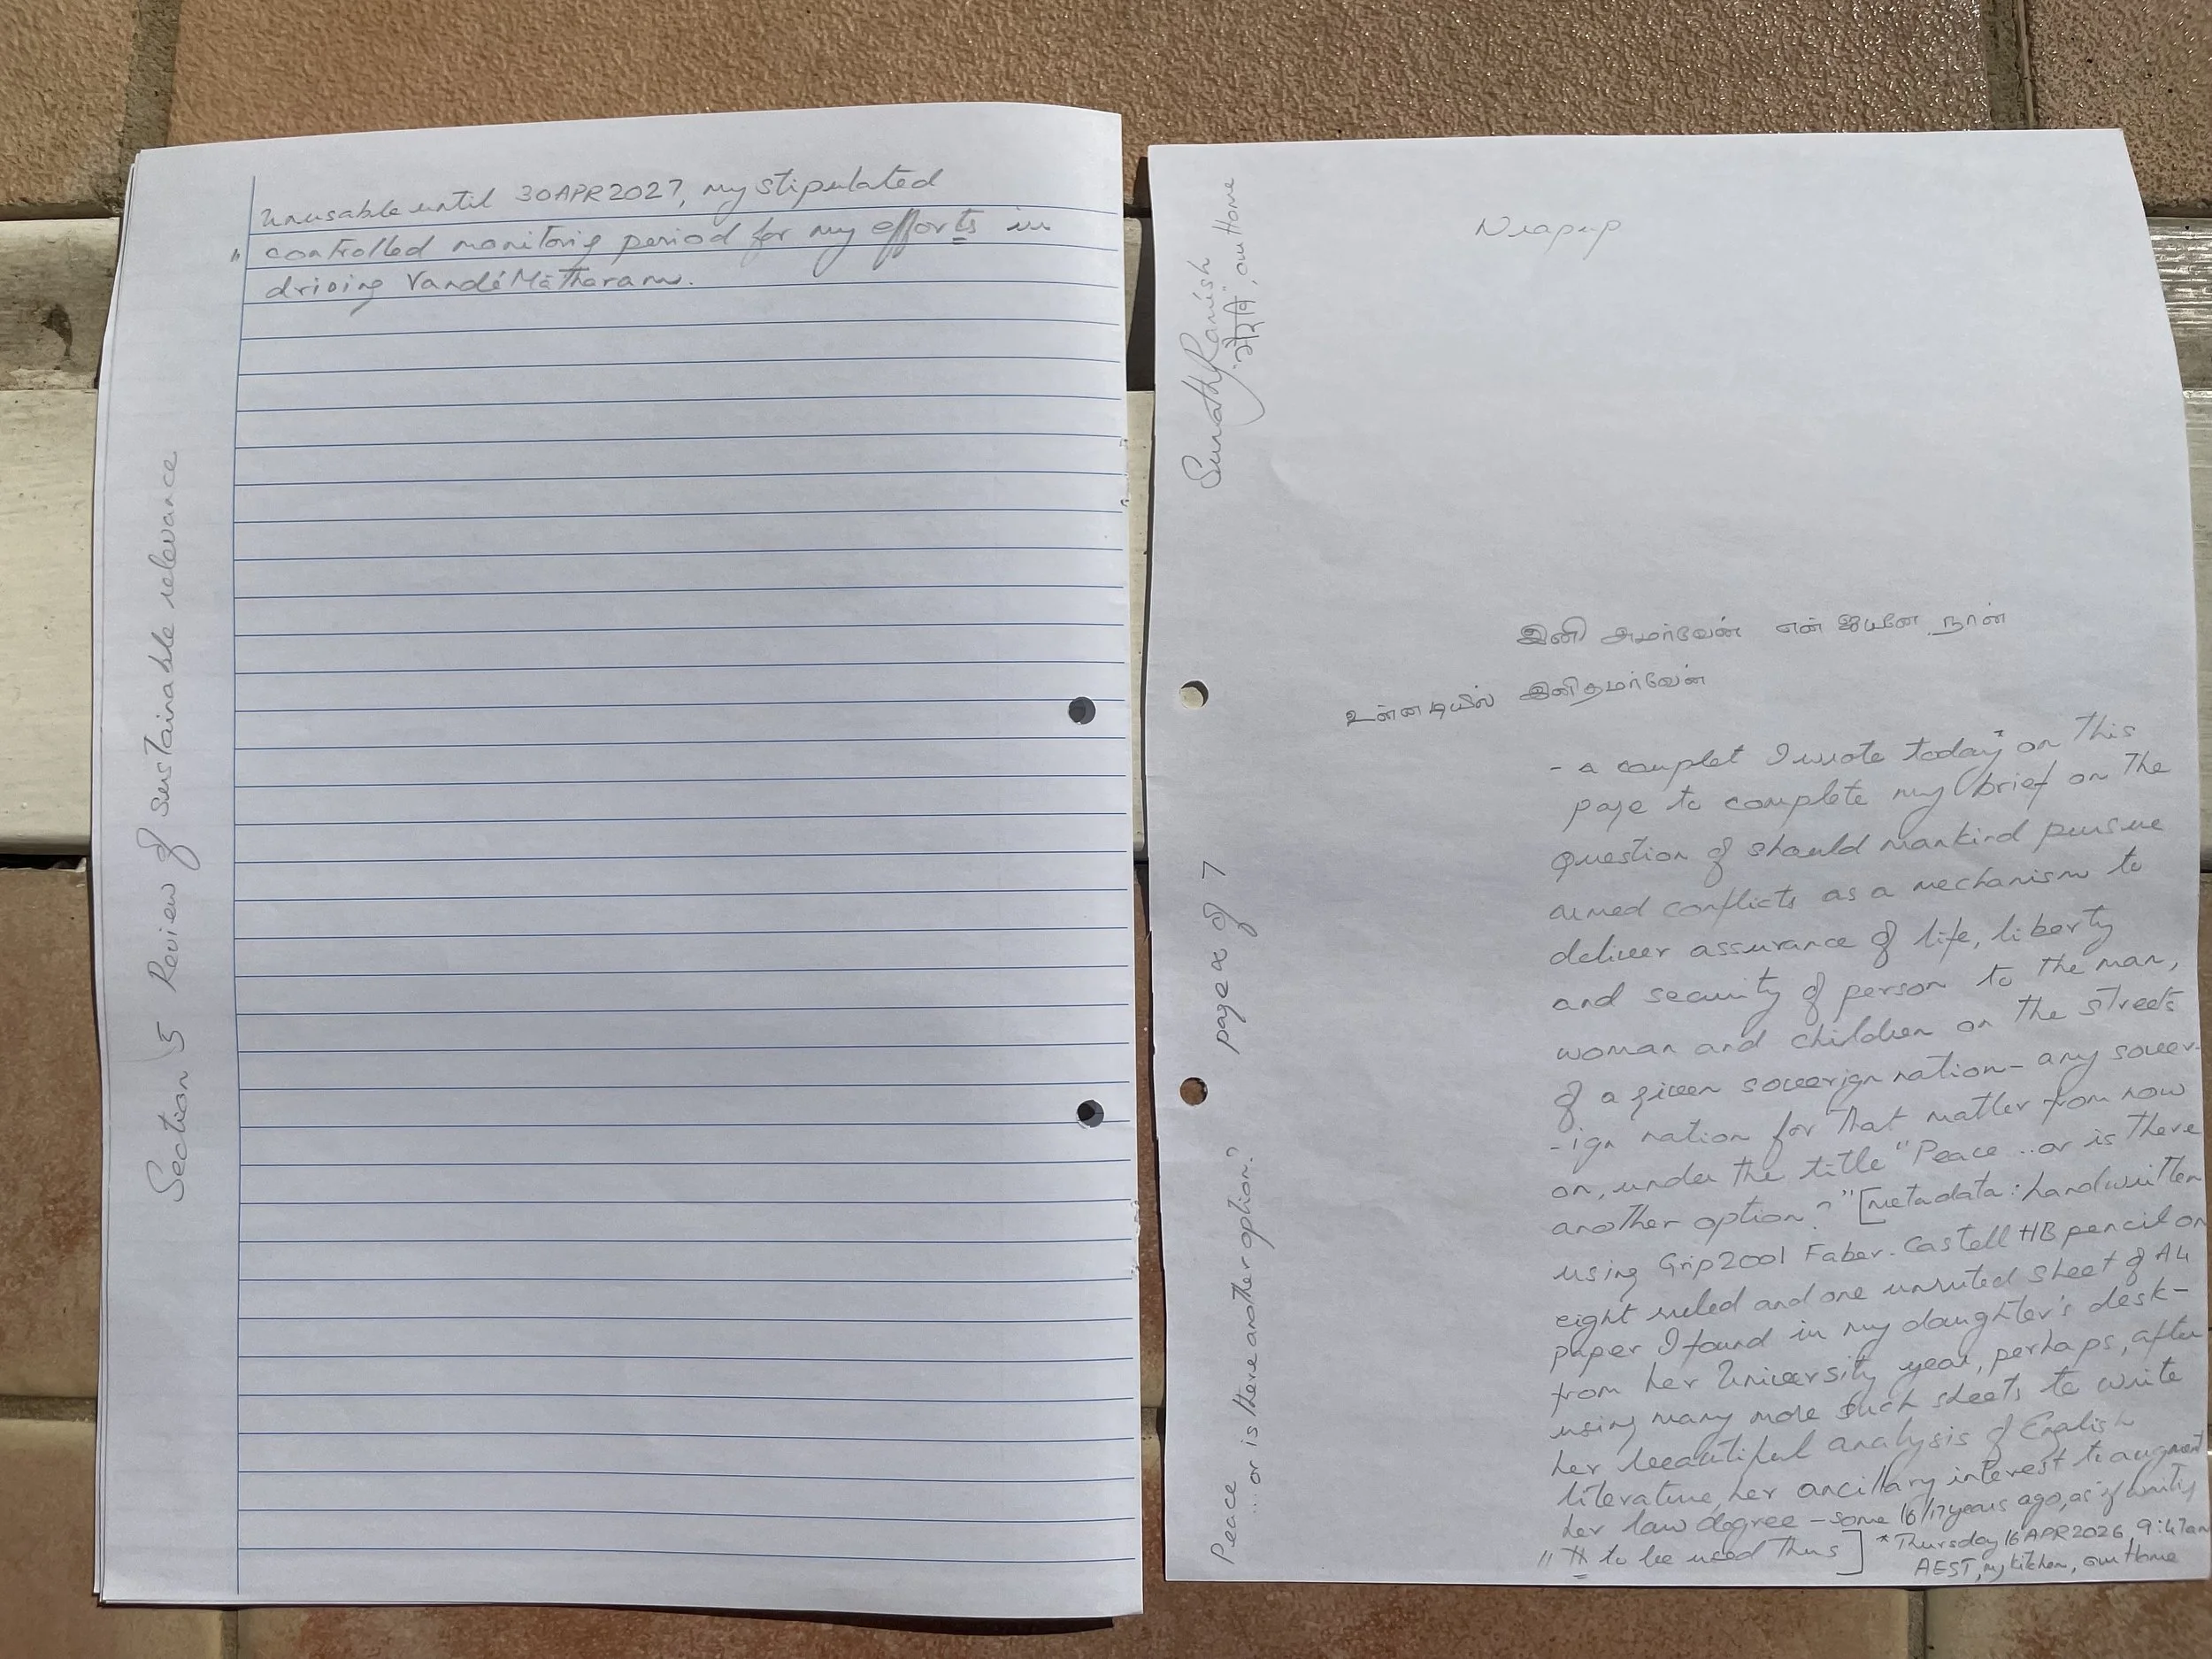 Unusable until 30APR2027, my stipulated
" controlled monitoring period for my efforts in
driving Vandé Mātharam.
Section 5 Review of sustainable relevance
இனி அமர்வேன் என் ஐயனே நான்
உன்னடியில் இனிதமர்வேன்
- a couplet I wrote today* on this
page to complete my brief on the
question of should mankind pursue
armed conflicts as a mechanism to
deliver assurance of life, liberty
and security of person to the man,
woman and children on the streets
of a given sovereign nation - any sover-
-ign nation for that matter from now
on, under the title "Peace ... or is there
another option?" [metadata: handwritten
using Grip2001 Faber-Castell HB pencil on
eight ruled and one unruled sheet of A4
paper I found in my daughter's desk -
from her University year, perhaps, after
using many more such sheets to write
her beautiful analysis of English
literature, her ancillary interest to augment
her law degree - some 16/17 years ago, as if waiting
" to be used thus] *Thursday 16APR2026, 9:47am
AEST, my kitchen, our Home
Peace
... or is there another option?
page of 7
Ramesh
, our Home